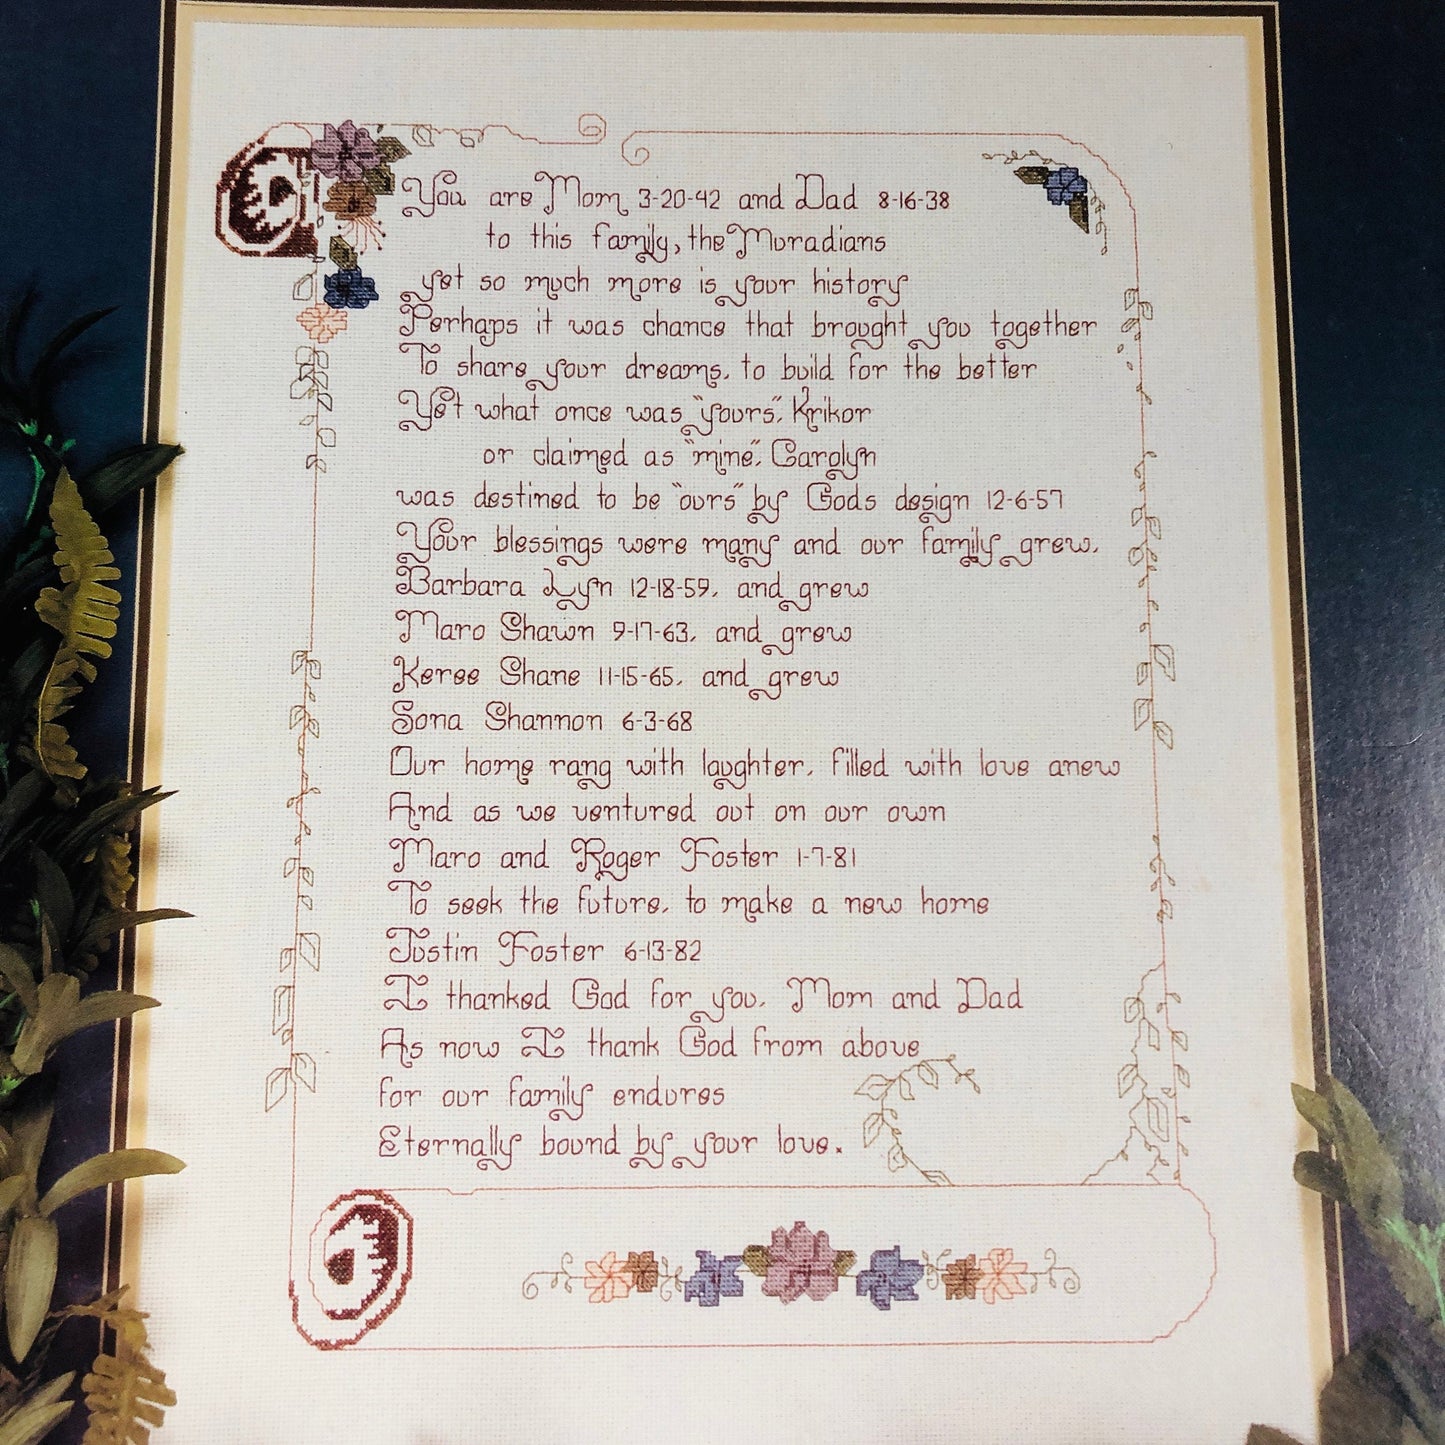 You are Mom 3-20-42 and Dad 8-16-38
to this family, the Muradians
yet so much more is your history
Perhaps it was chance that brought you together
To share your dreams, to build for the better
Yet what once was "yours", Krikor
or claimed as "mine", Carolyn
was destined to be "ours" by Gods design 12-6-57
Your blessings were many and our family grew,
Barbara Lyn 12-18-59, and grew
Maro Shawn 9-17-63, and grew
Keree Shane 11-15-65, and grew
Sona Shannon 6-3-68
Our home rang with laughter, filled with love anew
And as we ventured out on our own
Maro and Roger Foster 1-7-81
To seek the future, to make a new home
Justin Foster 6-13-82
I thanked God for you, Mom and Dad
As now I thank God from above
for our family endures
Eternally bound by your love.